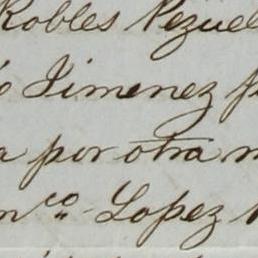 Robles Pezuel
o Jimenez p
a por otra m
nco Lopez